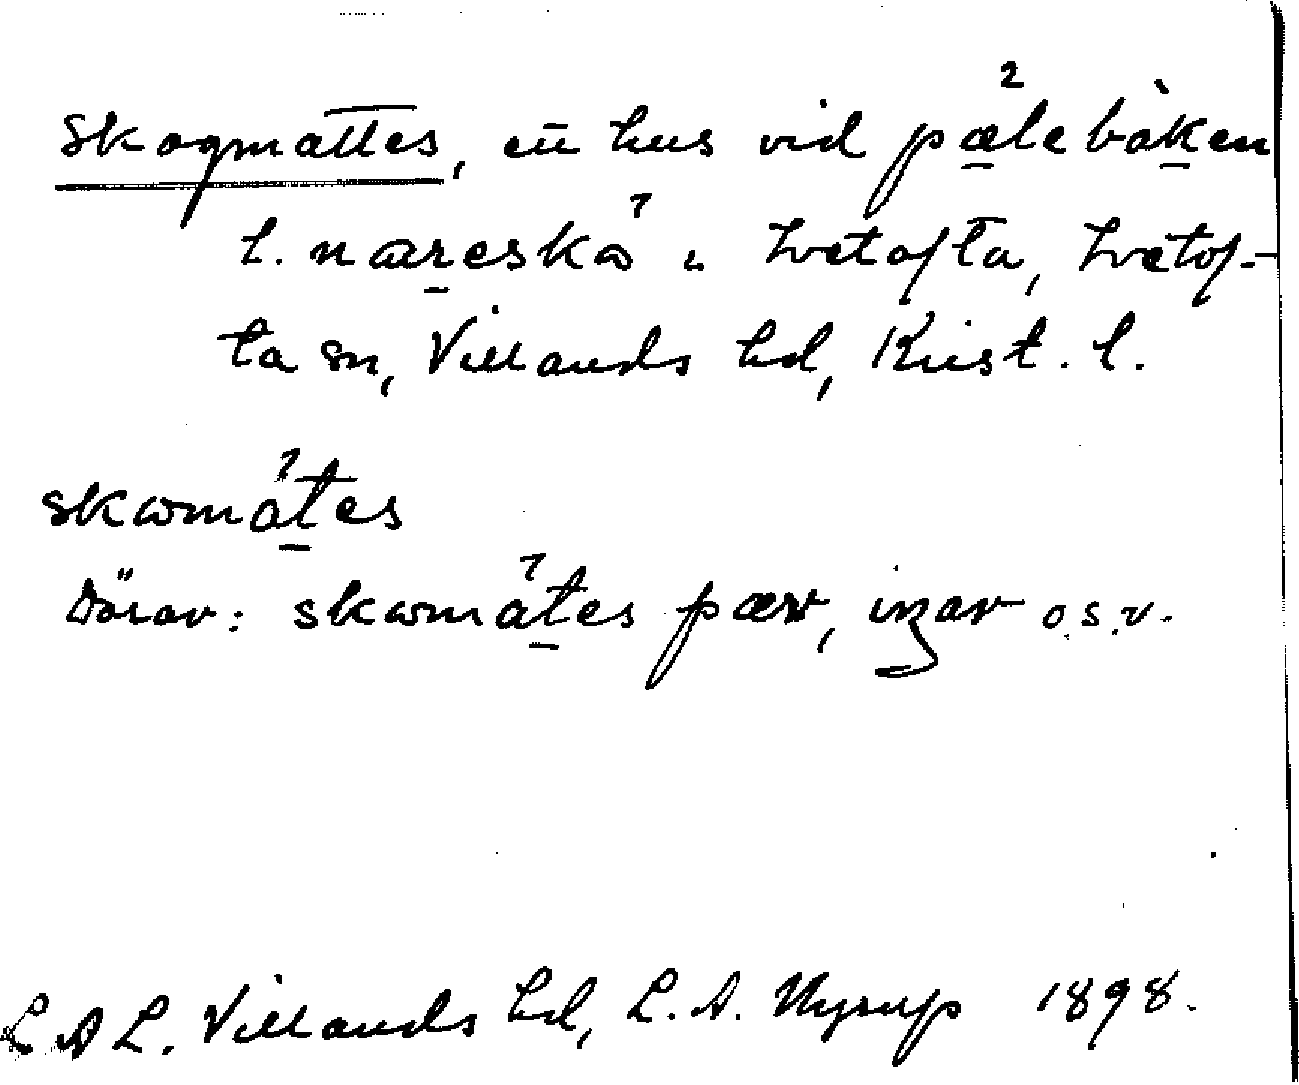 Skogmattes, ett hus vid pælebàken
l. næreskɷ i Ivetofta, Ivetof-
ta sn, Villands hd, Krist. l.
skɷmátes
Därav: skɷmátes pær, iŋar o.s.v.
L A L. Villands hd, L. A. Nyrup 1898.